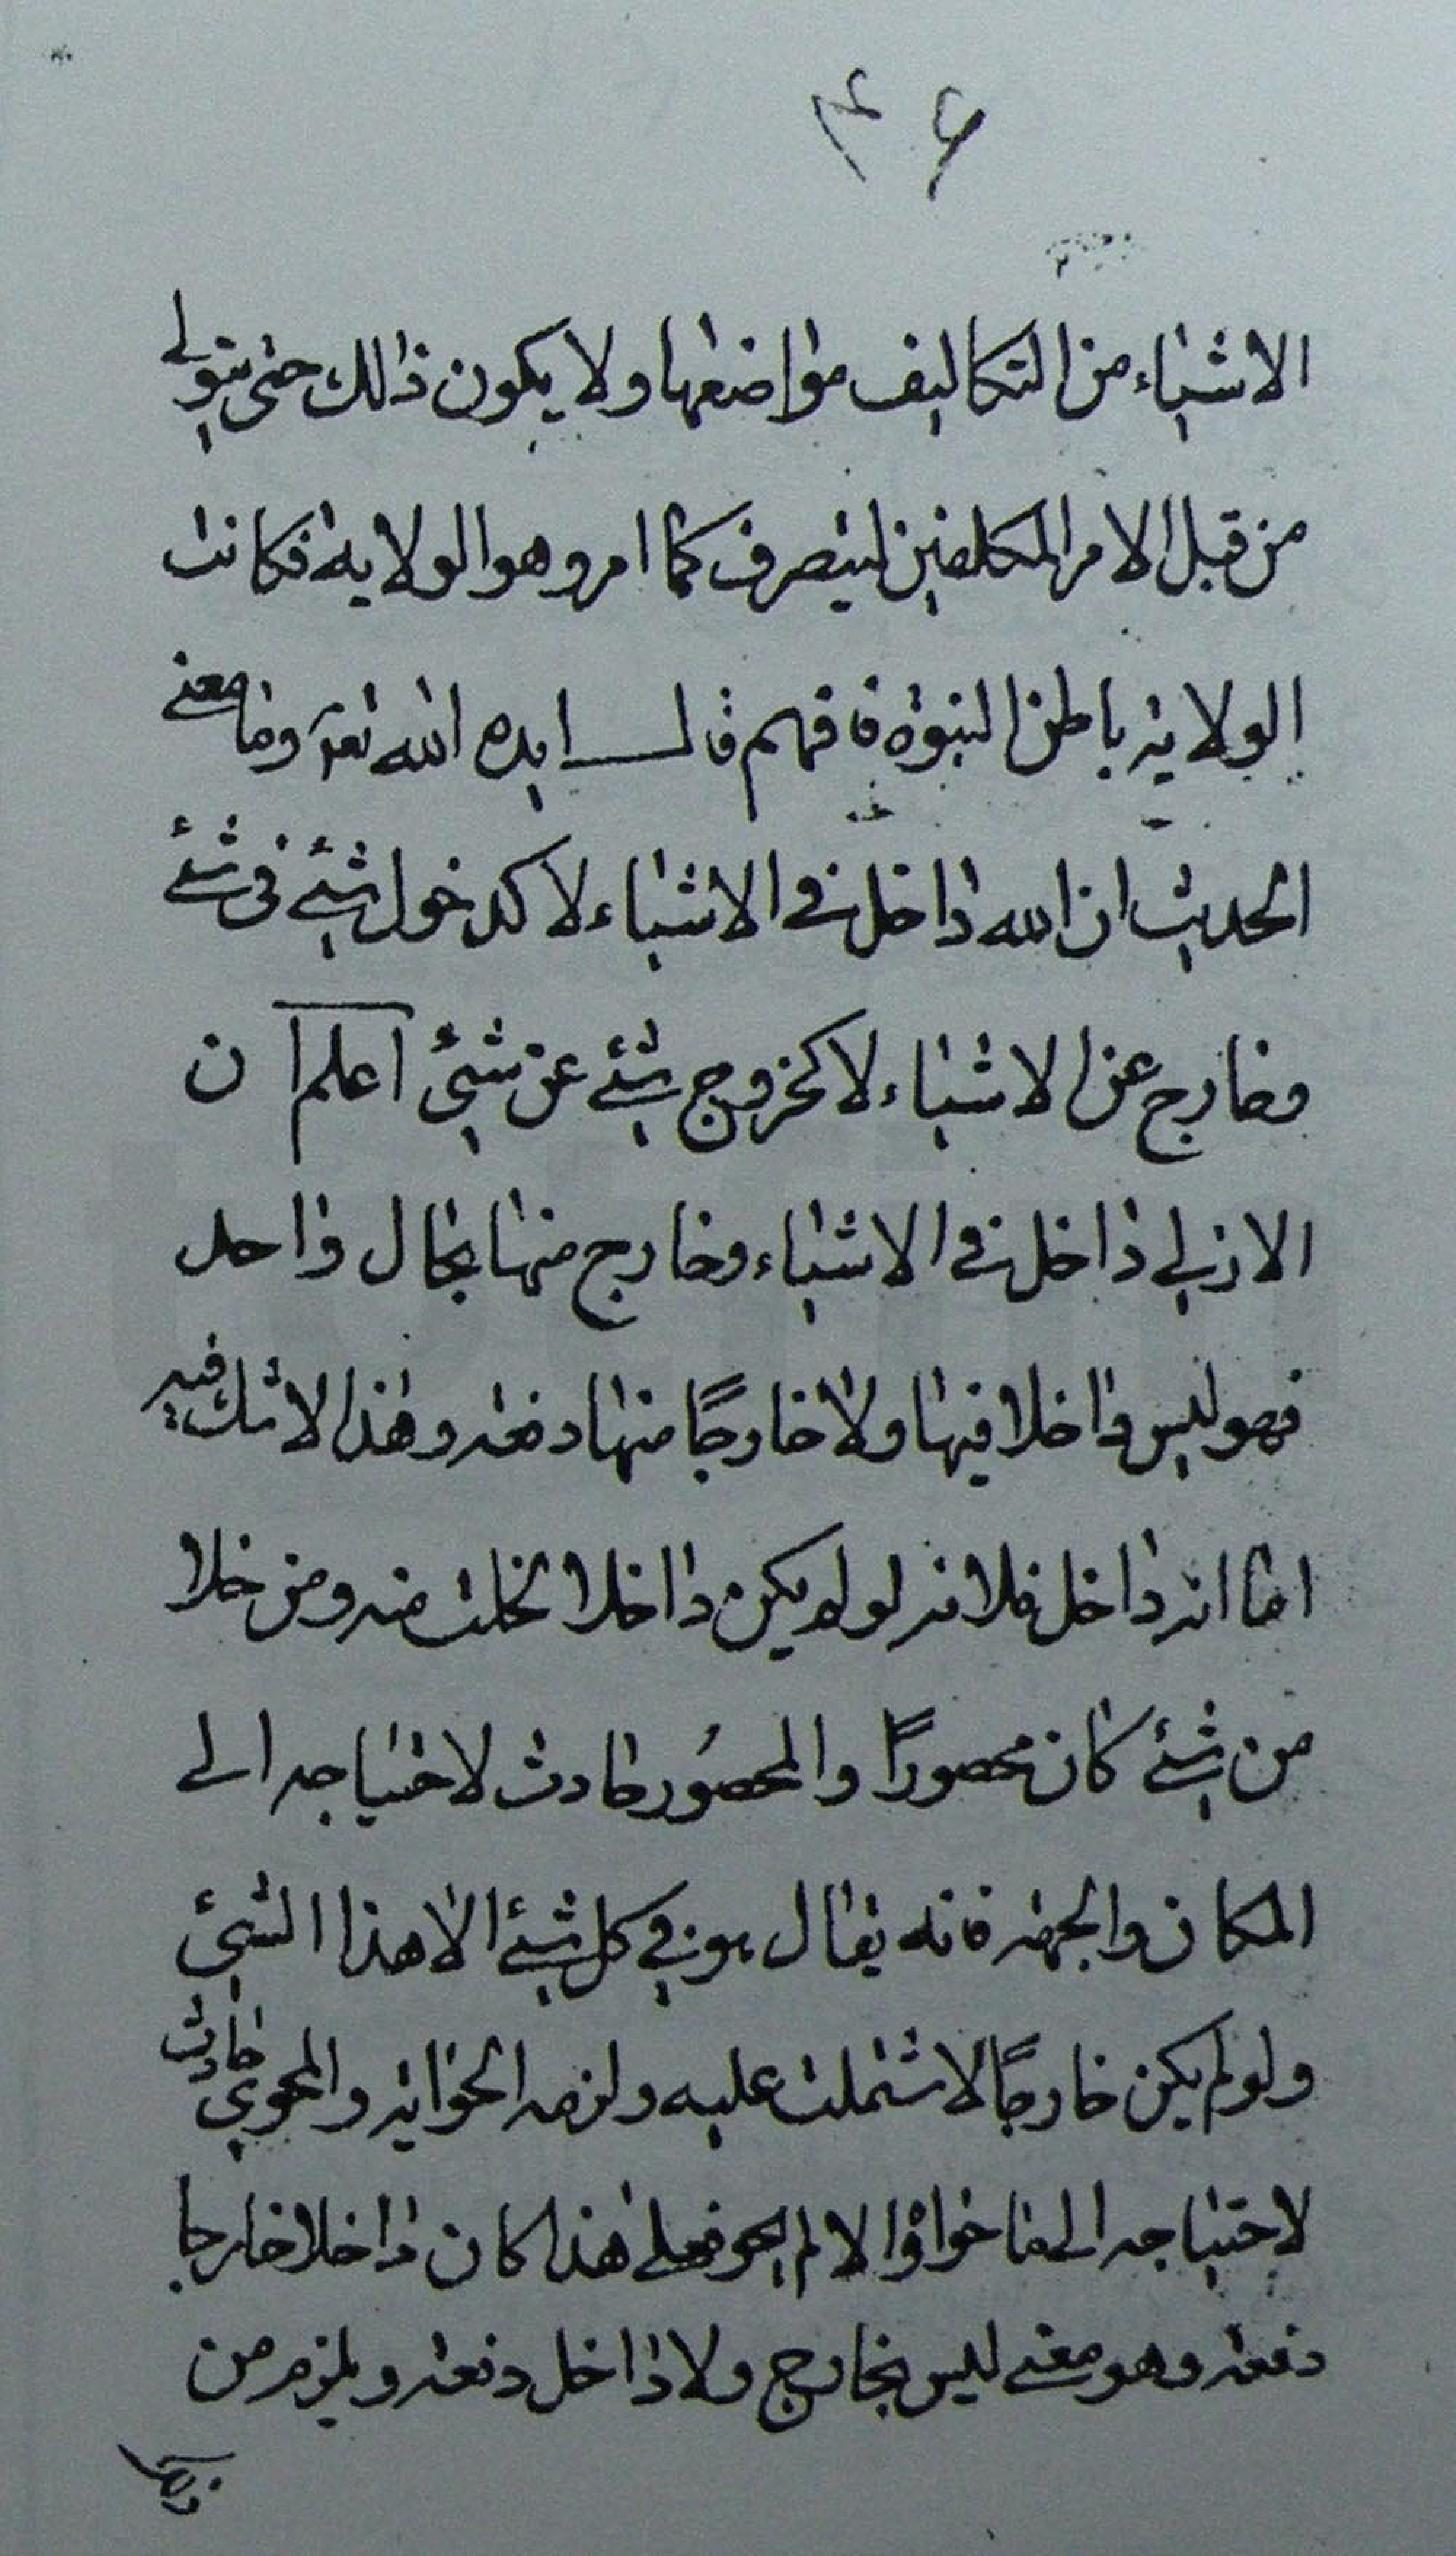 ۴۶
الاشياء من التكاليف مواضعها ولا يكون ذالك حتى يتولى
من قبل الامر المكلفين ليتصرف كما امر وهو الولاية فكانت
الولاية باطن النبوة فافهم قال ايده الله تعالى وما معنى
الحديث ان الله داخل في الاشياء لا كدخول شئ في شئ
وخارج عن الاشياء لا كخروج شئ عن شئ اعلم ان
الازلى داخل في الاشياء وخارج منها بحال واحد
فهو ليس داخلا فيها ولا خارجًا منها دفعة وهذا لا شك فيه
اما انه داخل فلانه لو لم يكن داخلا لخلت منه ومن خلا
من شئ كان محصورًا والمحصُور حادث لاحتياجه الى
المكان والجهة فانه يقال هو في كل شئ الا هذا الشئ
ولو لم يكن خارجًا لاشتملت عليه ولزمه الحواية والمحوي حادث
لاحتياجه الى ما حواه والا لم يحو فعلى هذا كان داخلا خارجا
دفعة وهو معنى ليس بخارج ولا داخل دفعة ويلزم من